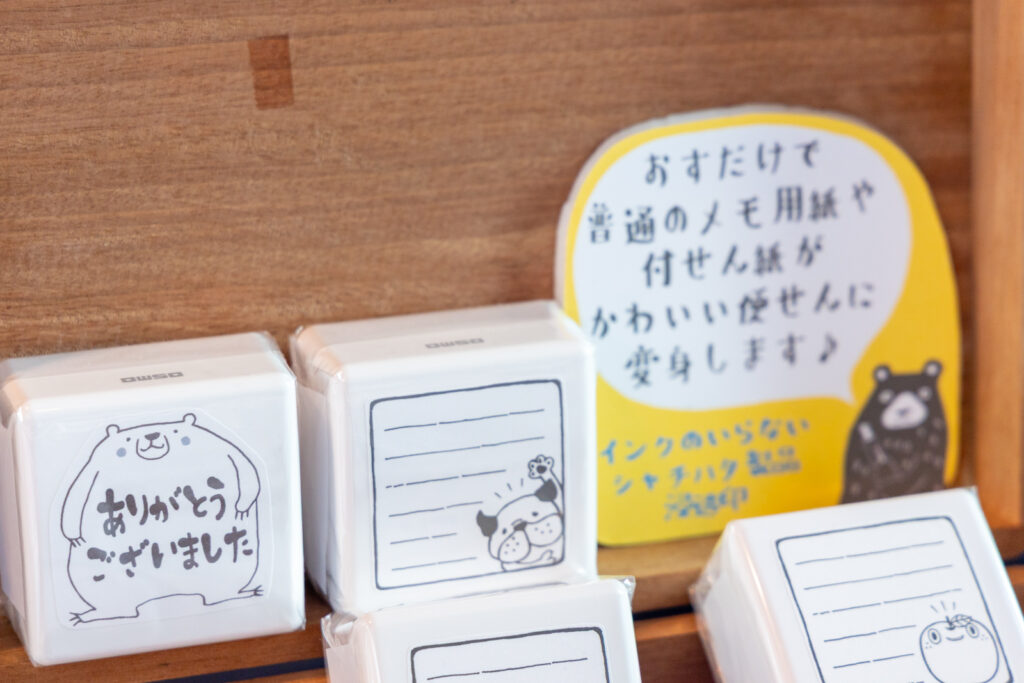 おすだけで
普通のメモ用紙や
付せん紙が
かわいい便せんに
変身します♪
インクのいらない
シャチハタ
浸透印
OSMO
OSMO
ありがとう
ございました